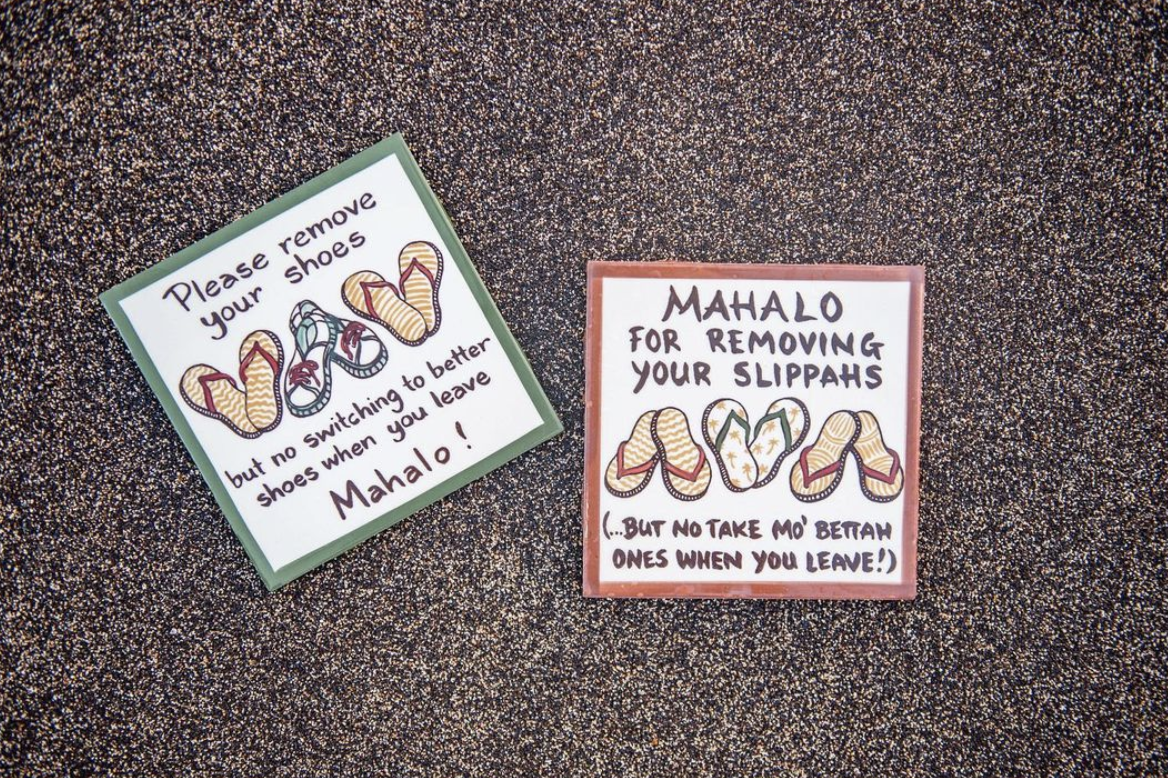 Please remove
your shoes
but no switching to better
shoes when you leave
Mahalo!
MAHALO
FOR REMOVING
YOUR SLIPPAHS
(...BUT NO TAKE MO' BETTAH
ONES WHEN YOU LEAVE!)